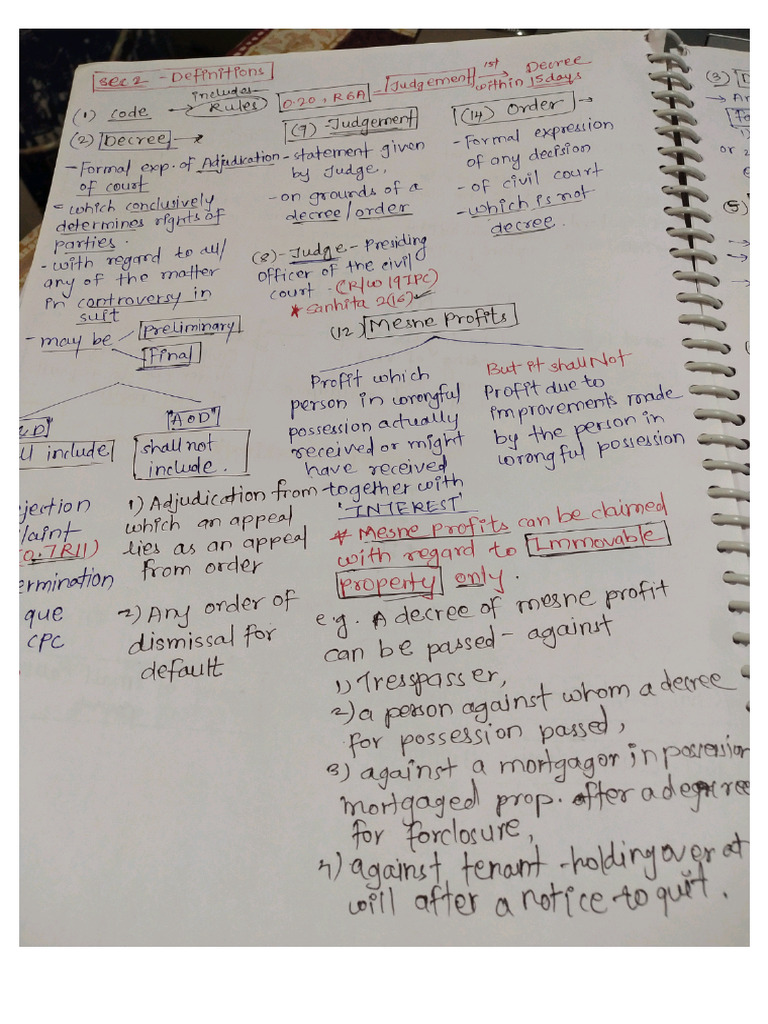 Sec 2 - Definitions
(1) Code → includes Rules
O.20, R6A = Judgement 1st → Decree within 15 days
(2) Decree →
- Formal exp. of Adjudication of court
= which conclusively
determines rights of
parties.
- with regard to all/
any of the matter
in controversy in
suit
- may be Preliminary
Final
(9) - Judgement
- statement given
by Judge,
- on grounds of a
decree/order
(8) - Judge - Presiding
officer of the civil
court - (R/W 19 IPC)
* Sanhita 2(16) ✓
(14) Order →
- Formal expression
of any decision
- of civil court
- which is not
decree.
include
jection
laint
(O.7 R11)
ermination
que
CPC
"AOD"
shall not
include.
1) Adjudication from
which an appeal
lies as an appeal
from order
2) Any order of
dismissal for
default
(12) Mesne Profits
Profit which
person in wrongful
possession actually
received or might
have received
together with
'INTEREST'
But it shall Not
Profit due to
improvements made
by the person in
wrongful possession
* Mesne profits can be claimed
with regard to Immovable
property only.
e.g. A decree of mesne profit
can be passed - against
1) Tresspasser,
2) a person against whom a decree
for possession passed,
3) against a mortgagor in possession
mortgaged prop. after a decree
for forclosure,
4) against tenant -holding over at
will after a notice to quit.
(3)
→ A
1)
or 2
(5)